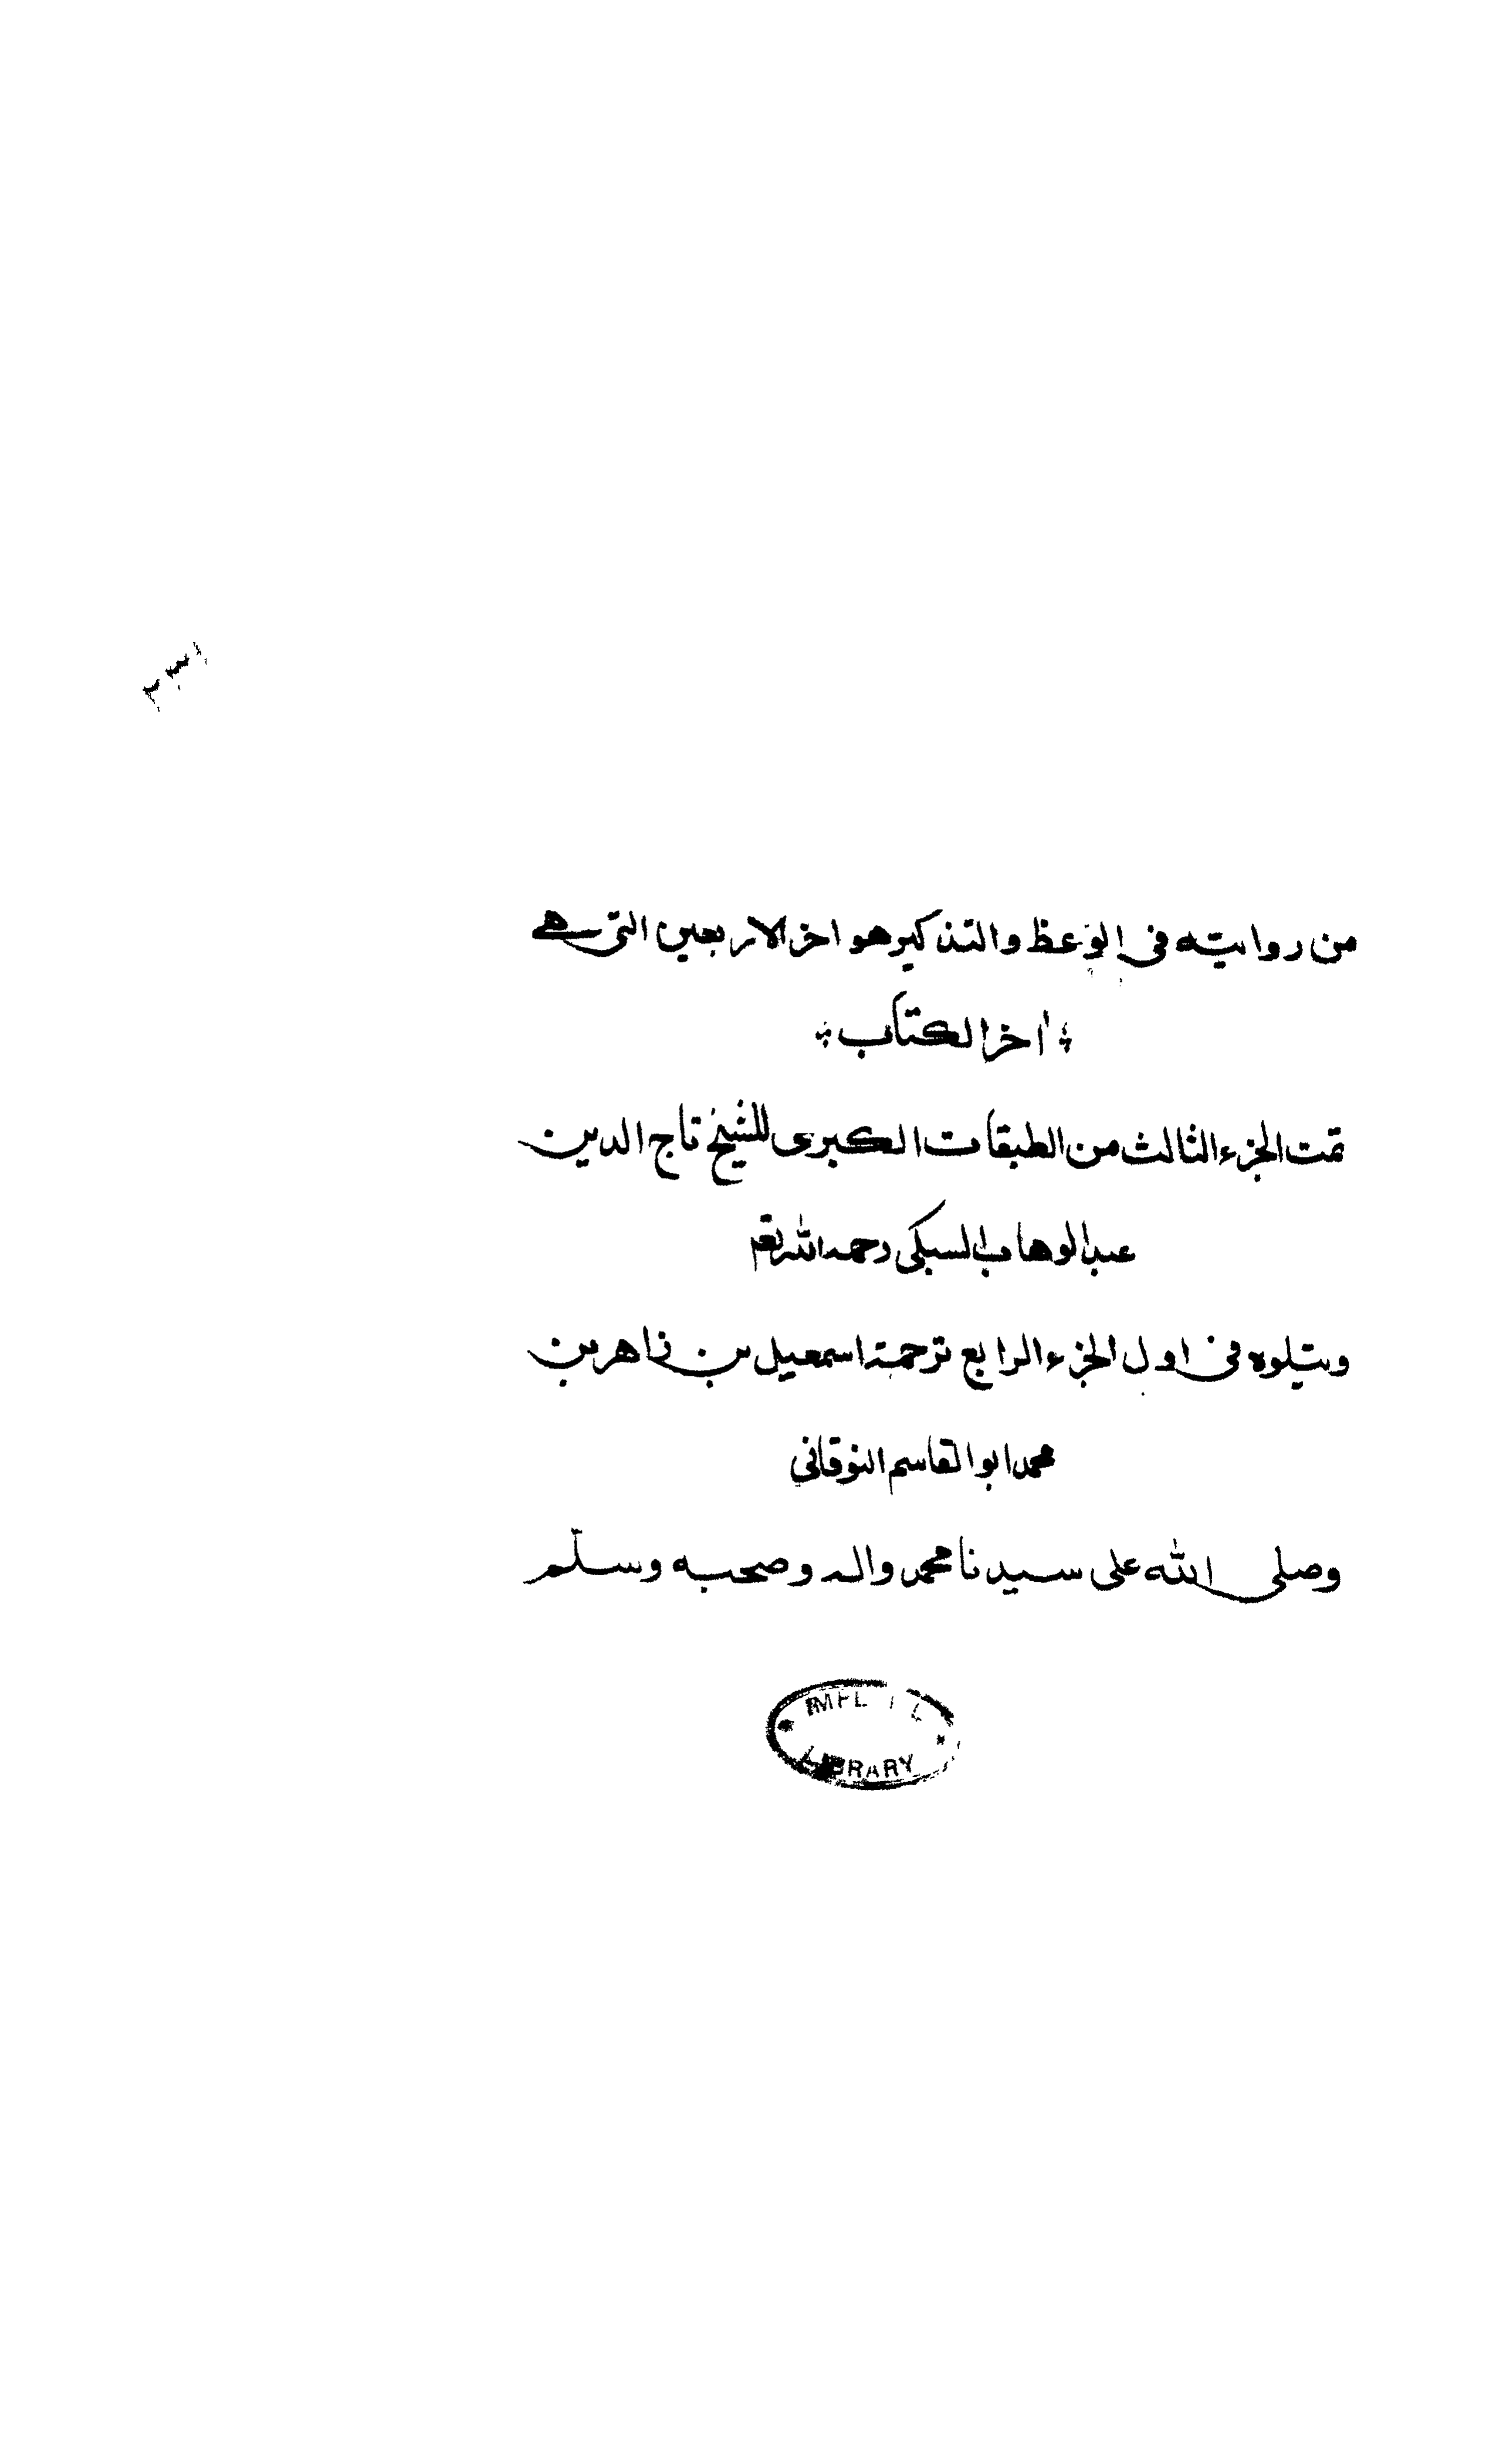 من روايته فى الوعظ والتذكير هو اخر الاربعين التى هے
اخر الكتاب
تمت الجزء الثالث من الطبقات الكبرى للشيخ تاج الدين
عبد الوهاب السبكى رحمه الله تعم
ويتلوه فى اول الجزء الرابع ترجمة اسمعيل بن زاهر بن
محمد ابو القاسم النوقاني
وصلى الله على سيدنا محمد واله وصحبه وسلّم
LIBRARY